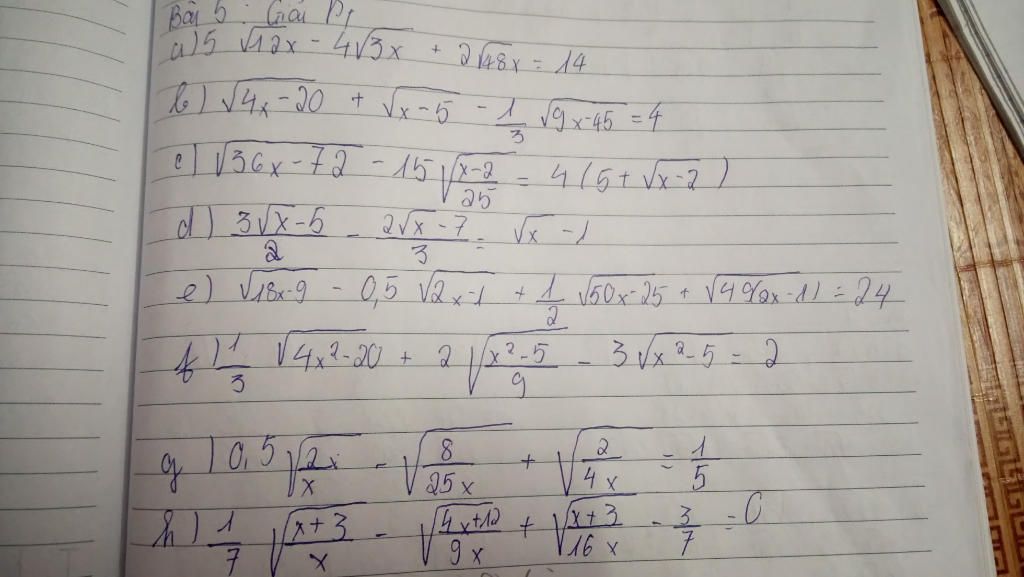 Bài 5 : Giải Pt
a) 5 √12x - 4√3x + 2√48x = 14
b) √(4x-20) + √(x-5) - 1/3 √(9x-45) = 4
c) √(36x-72) - 15 √((x-2)/25) = 4 (5 + √(x-2))
d) (3√x-5)/2 - (2√x-7)/3 = √x - 1
e) √(18x-9) - 0,5 √(2x-1) + 1/2 √(50x-25) + √(49(2x-1)) = 24
f) 1/3 √(4x²-20) + 2 √((x²-5)/9) - 3√(x²-5) = 2
g) 0,5 √(2x/x) - √(8/25x) + √(2/4x) = 1/5
h) 1/7 √((x+3)/x) - √((4x+12)/9x) + √((x+3)/16x) - 3/7 = 0